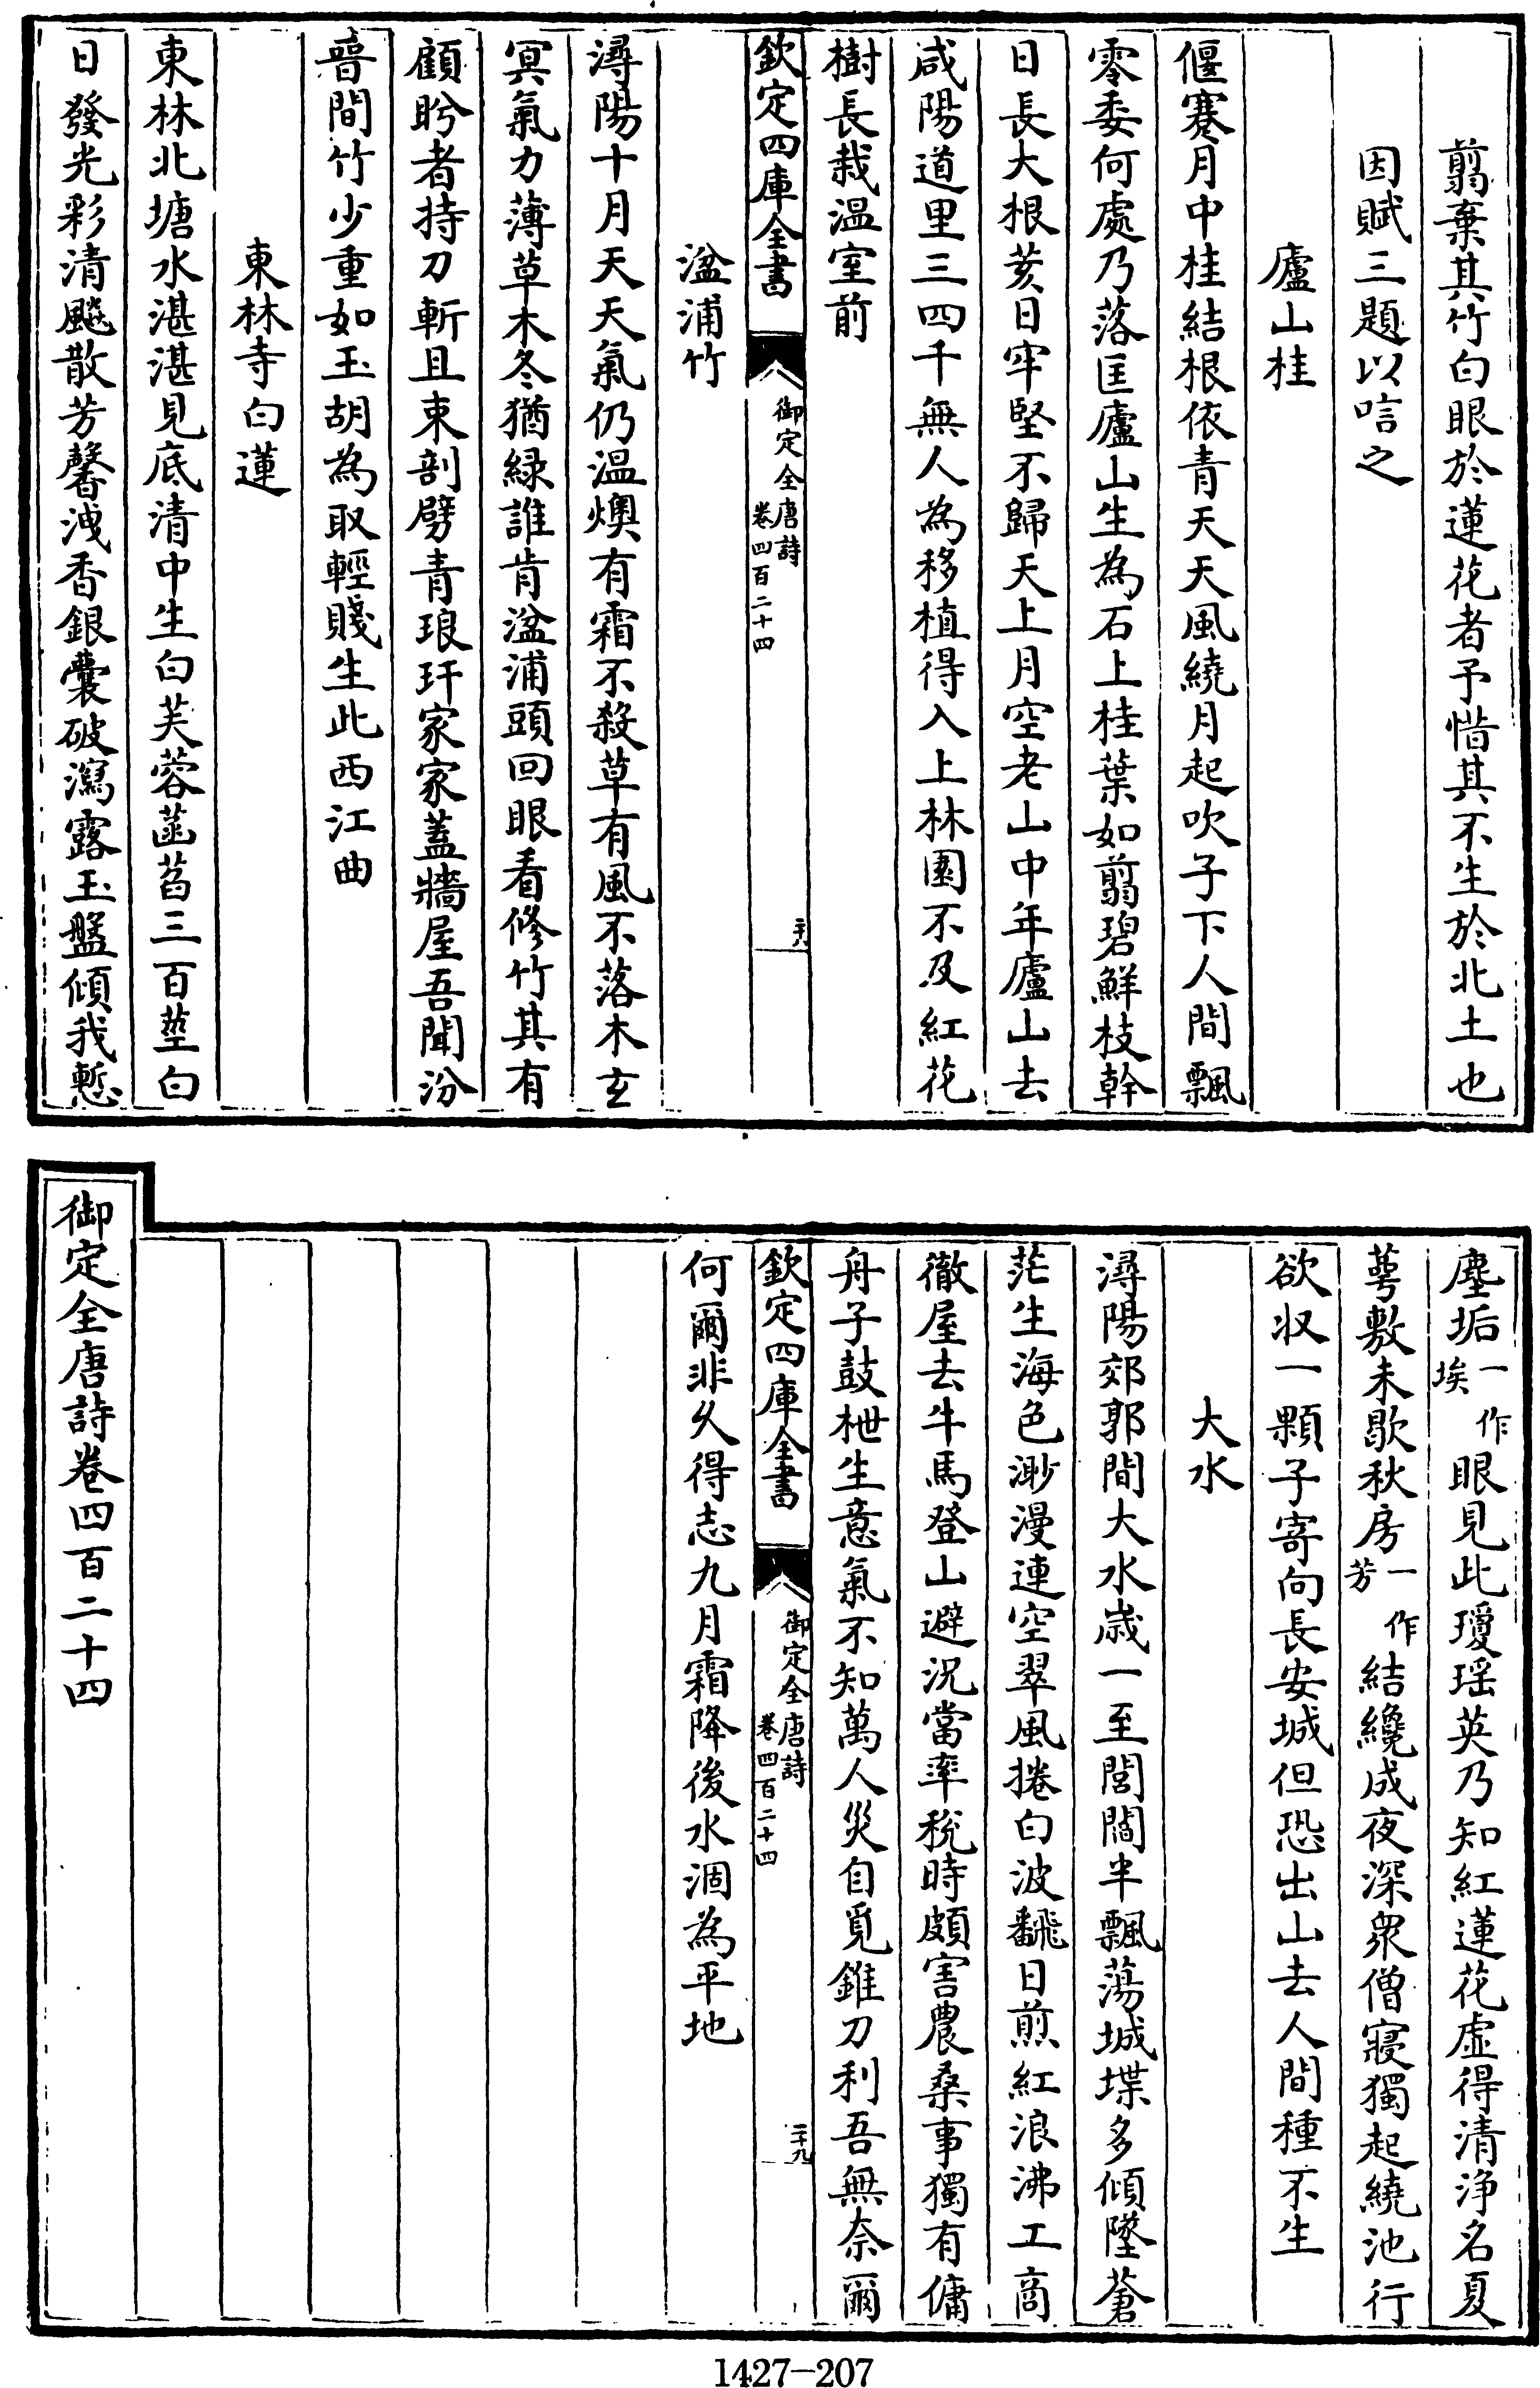 翦棄其竹白眼於蓮花者予惜其不生於北土也
因賦三題以唁之
廬山桂
偃蹇月中桂結根依青天天風繞月起吹子下人間飄
零委何處乃落匡廬山生為石上桂葉如翦碧鮮枝幹
日長大根荄日牢堅不歸天上月空老山中年廬山去
咸陽道里三四千無人為移植得入上林園不及紅花
樹長栽温室前
欽定四庫全書
御定全唐詩
卷四百二十四
湓浦竹
潯陽十月天天氣仍温燠有霜不殺草有風不落木玄
冥氣力薄草木冬猶緑誰肯湓浦頭回眼看修竹其有
顧盻者持刀斬且束剖劈青琅玕家家蓋牆屋吾聞汾
晉間竹少重如玉胡為取輕賤生此西江曲
東林寺白蓮
東林北塘水湛湛見底清中生白芙蓉菡萏三百莖白
日發光彩清飈散芳馨洩香銀囊破瀉露玉盤傾我慙
塵垢一作埃眼見此瓊瑶英乃知紅蓮花虚得清浄名夏
萼敷未歇秋房一作芳結纔成夜深衆僧寢獨起繞池行
欲收一顆子寄向長安城但恐出山去人間種不生
大水
潯陽郊郭間大水歳一至閭閻半飄蕩城堞多傾墜蒼
茫生海色渺漫連空翠風捲白波飜日煎紅浪沸工商
徹屋去牛馬登山避況當率税時頗害農桑事獨有傭
舟子鼓枻生意氣不知萬人災自覓錐刀利吾無奈爾
欽定四庫全書
御定全唐詩
卷四百二十四
二十九
何爾非久得志九月霜降後水涸為平地
御定全唐詩卷四百二十四
1427-207